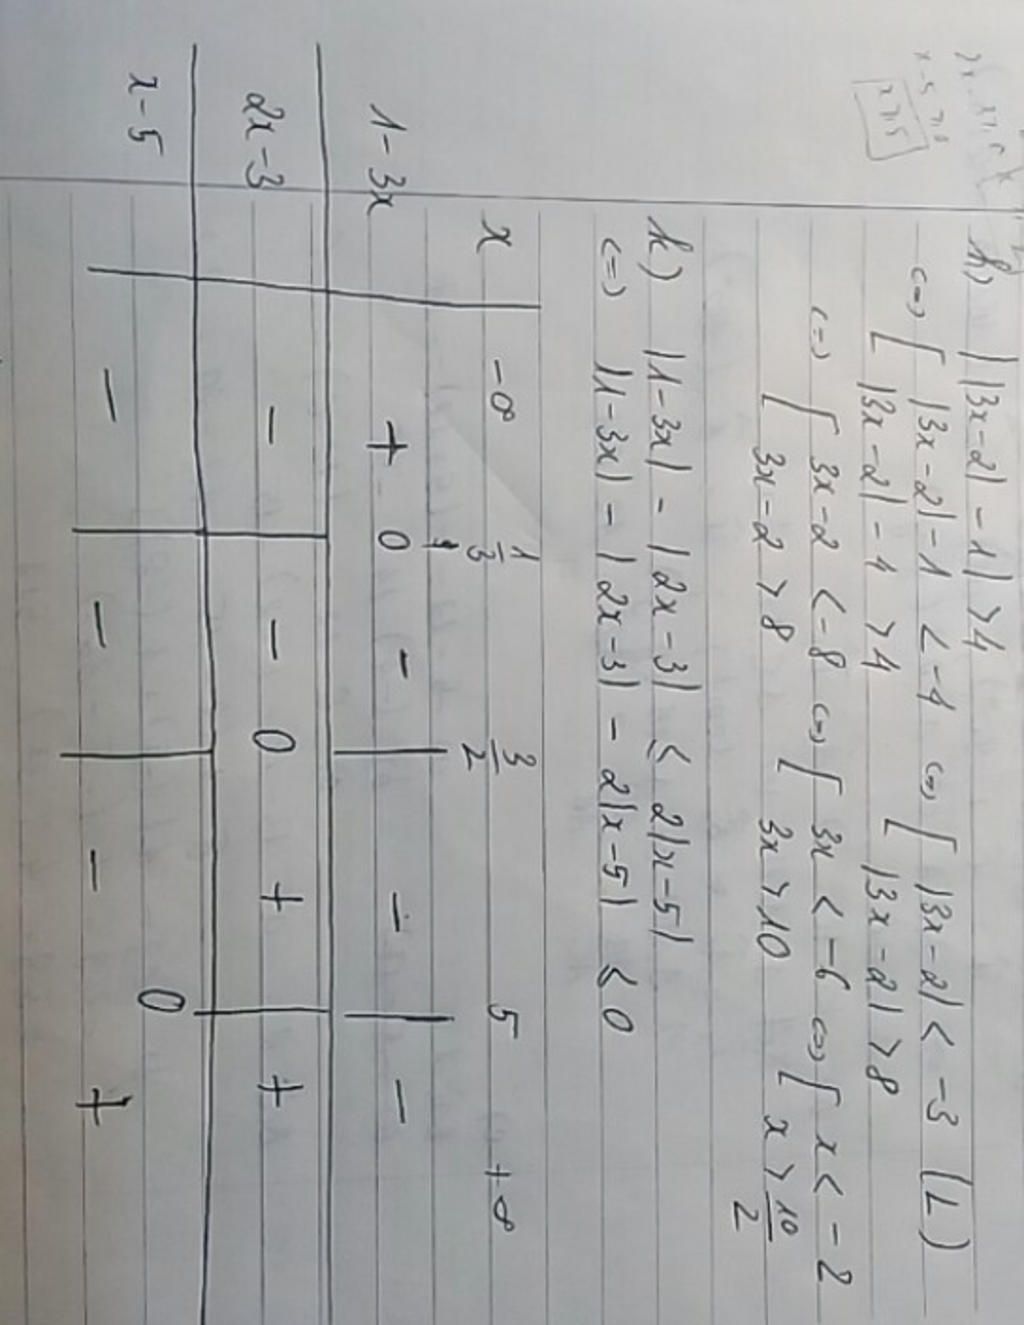 h) | |3x-2| - 1| > 4
<=> [ |3x-2| - 1 < -4 <=> [ |3x-2| < -3 (L)
[ |3x-2| - 1 > 4 [ |3x-2| > 8
<=> [ 3x-2 < -8 <=> [ 3x < -6 <=> [ x < -2
[ 3x-2 > 8 [ 3x > 10 [ x > 10/2
k) |1-3x| - |2x-3| ≤ 2|x-5|
<=> |1-3x| - |2x-3| - 2|x-5| ≤ 0
x -∞ 1/3 3/2 5 +∞
1-3x + 0 - | - | -
2x-3 - | - 0 + | +
x-5 - | - | - 0 +